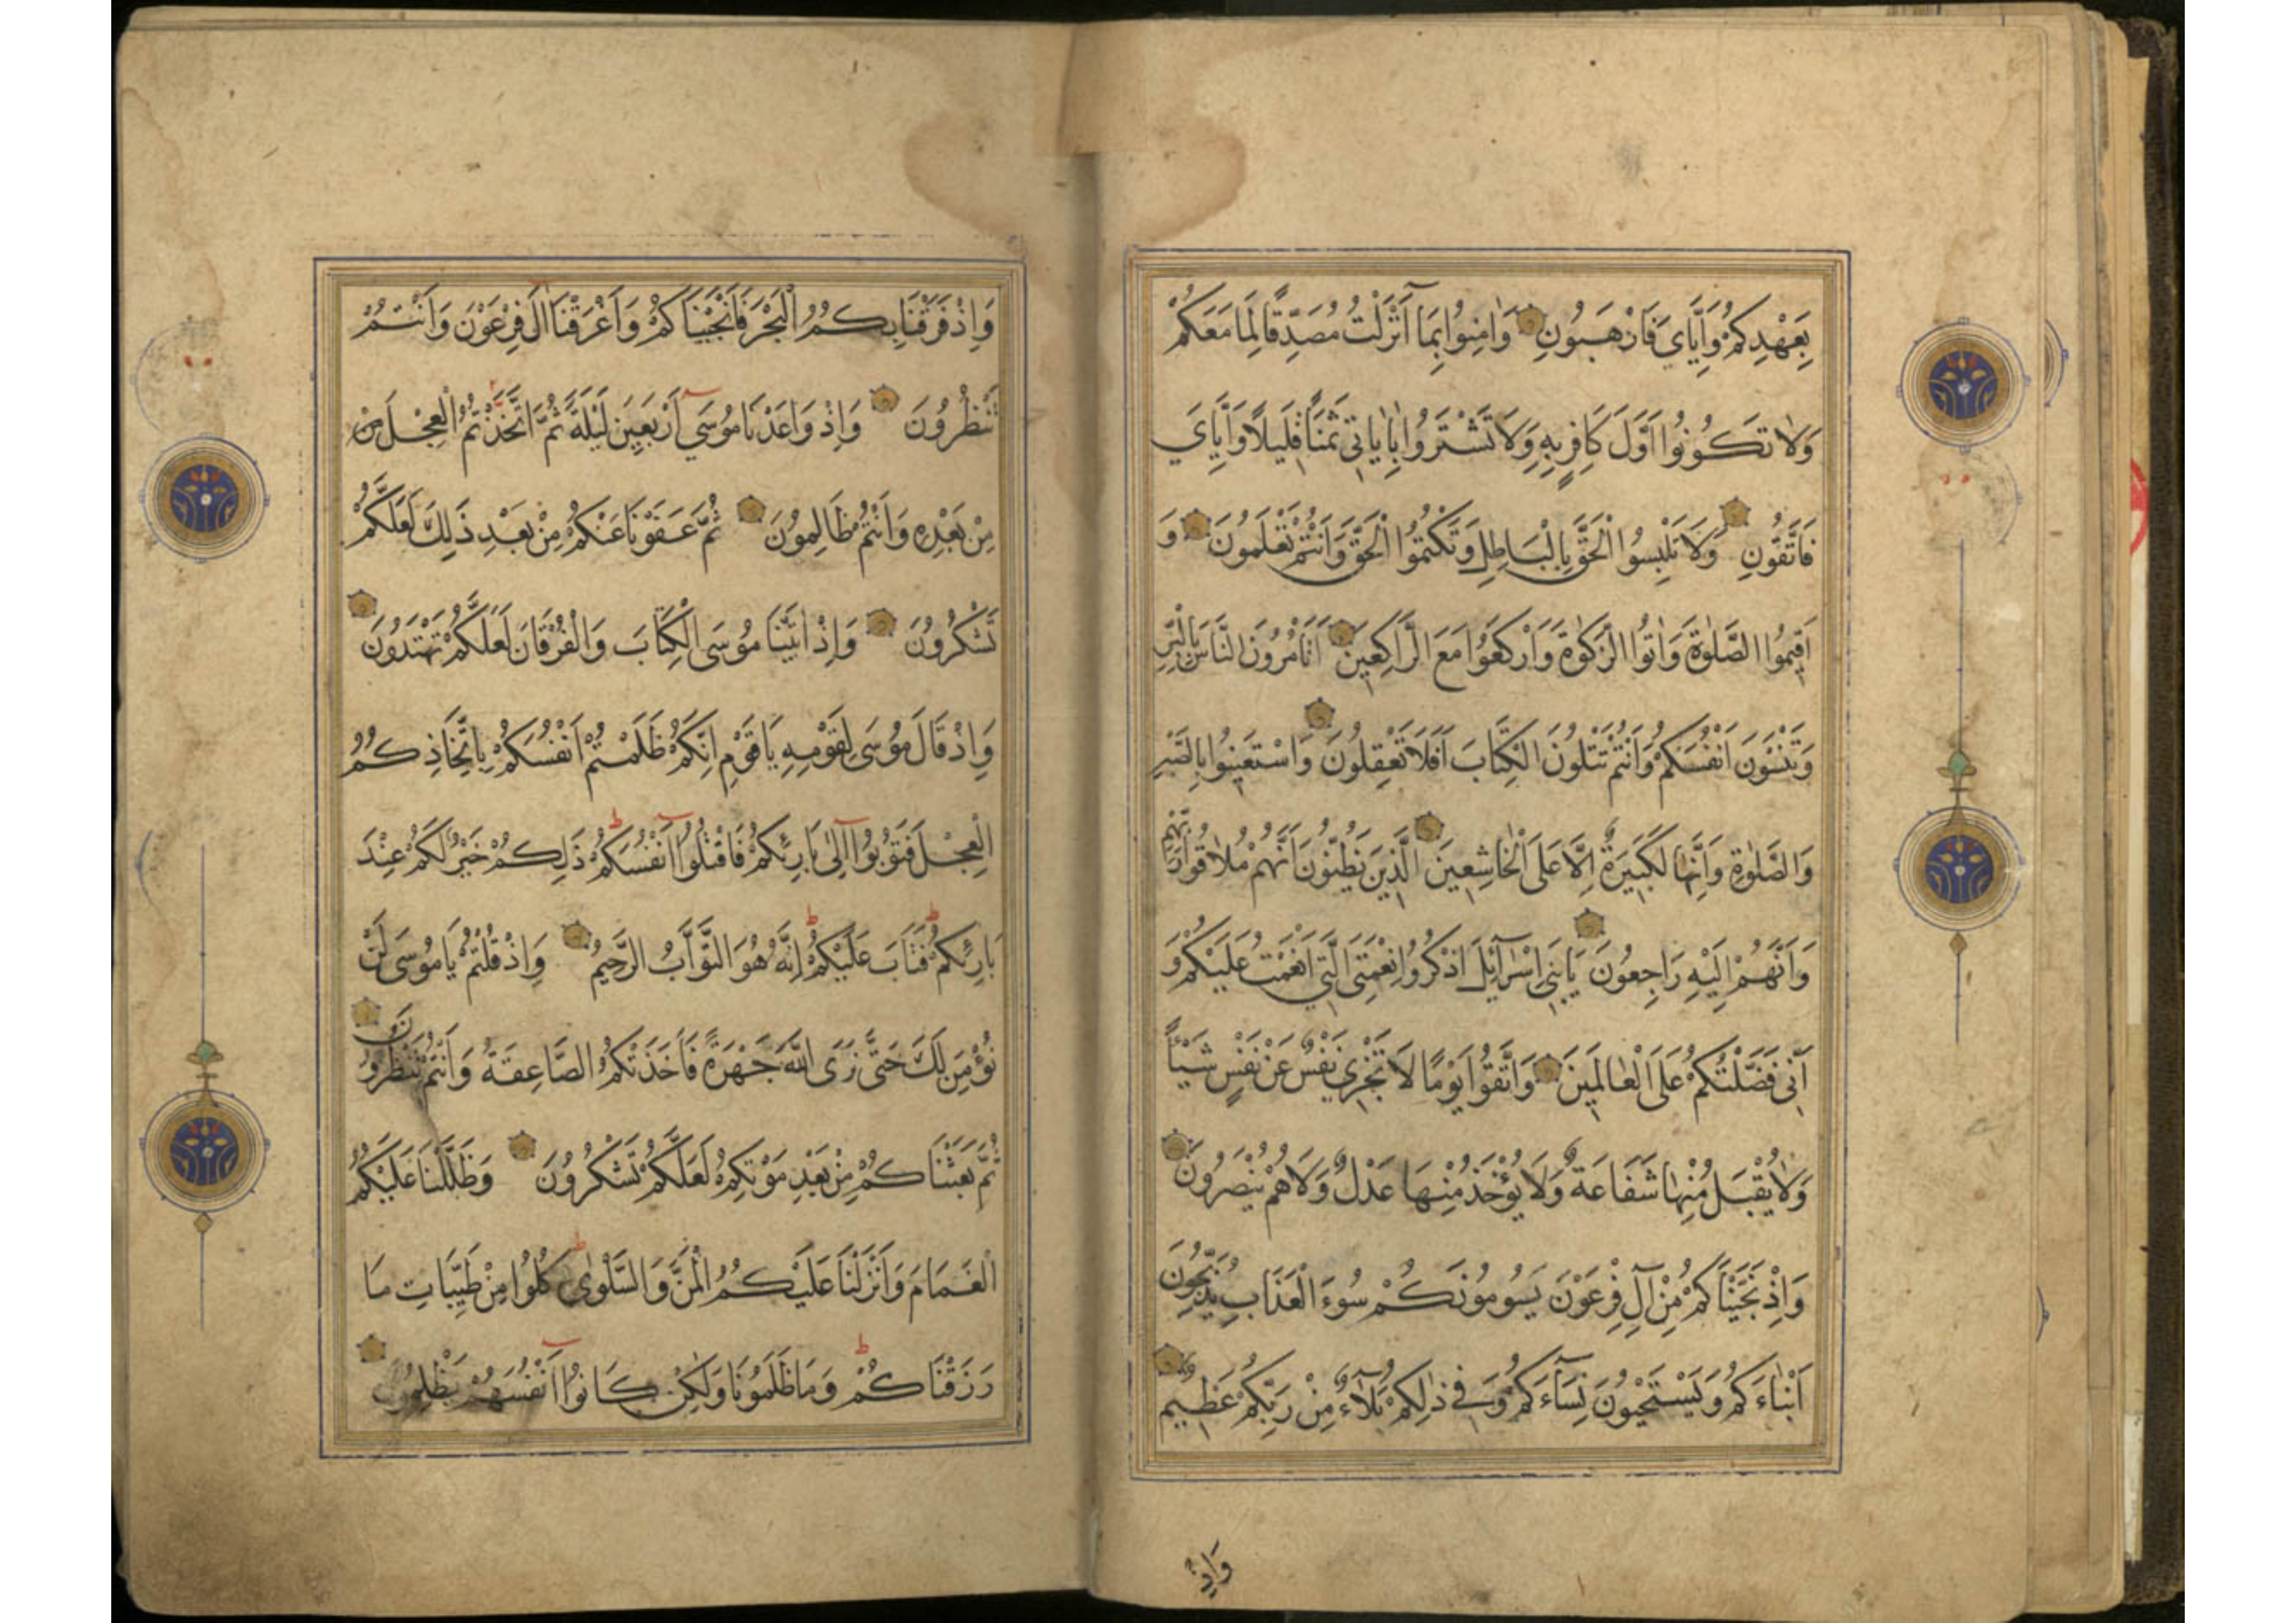 بِعَهْدِكُمْ وَاِيَّايَ فَارْهَبُونِ وَاٰمِنُوا بِمَآ اَنْزَلْتُ مُصَدِّقًا لِمَا مَعَكُمْ
وَلَا تَكُونُوا اَوَّلَ كَافِرٍ بِهِ وَلَا تَشْتَرُوا بِاٰيَاتِي ثَمَنًا قَلِيلًا وَاِيَّايَ
فَاتَّقُونِ وَلَا تَلْبِسُوا الْحَقَّ بِالْبَاطِلِ وَتَكْتُمُوا الْحَقَّ وَاَنْتُمْ تَعْلَمُونَ وَ
اَقِيمُوا الصَّلٰوةَ وَاٰتُوا الزَّكٰوةَ وَارْكَعُوا مَعَ الرَّاكِعِينَ اَتَأْمُرُونَ النَّاسَ بِالْبِرِّ
وَتَنْسَوْنَ اَنْفُسَكُمْ وَاَنْتُمْ تَتْلُونَ الْكِتَابَ اَفَلَا تَعْقِلُونَ وَاسْتَعِينُوا بِالصَّبْرِ
وَالصَّلٰوةِ وَاِنَّهَا لَكَبِيرَةٌ اِلَّا عَلَى الْخَاشِعِينَ الَّذِينَ يَظُنُّونَ اَنَّهُمْ مُلَاقُوا رَبِّهِمْ
وَاَنَّهُمْ اِلَيْهِ رَاجِعُونَ يَابَنِي اِسْرَآئِلَ اذْكُرُوا نِعْمَتِيَ الَّتِي اَنْعَمْتُ عَلَيْكُمْ وَ
اَنِّي فَضَّلْتُكُمْ عَلَى الْعَالَمِينَ وَاتَّقُوا يَوْمًا لَا تَجْزِي نَفْسٌ عَنْ نَفْسٍ شَيْئًا
وَلَا يُقْبَلُ مِنْهَا شَفَاعَةٌ وَلَا يُؤْخَذُ مِنْهَا عَدْلٌ وَلَا هُمْ يُنْصَرُونَ
وَاِذْ نَجَّيْنَاكُمْ مِنْ آلِ فِرْعَوْنَ يَسُومُونَكُمْ سُوءَ الْعَذَابِ يُذَبِّحُونَ
اَبْنَاءَكُمْ وَيَسْتَحْيُونَ نِسَآءَكُمْ وَفِي ذٰلِكُمْ بَلَآءٌ مِنْ رَبِّكُمْ عَظِيمٌ
وَاِذْ
وَاِذْ فَرَقْنَا بِكُمُ الْبَحْرَ فَاَنْجَيْنَاكُمْ وَاَغْرَقْنَا اٰلَ فِرْعَوْنَ وَاَنْتُمْ
تَنْظُرُونَ وَاِذْ وَاعَدْنَا مُوسَى اَرْبَعِينَ لَيْلَةً ثُمَّ اتَّخَذْتُمُ الْعِجْلَ مِنْ
مِنْ بَعْدِهِ وَاَنْتُمْ ظَالِمُونَ ثُمَّ عَفَوْنَا عَنْكُمْ مِنْ بَعْدِ ذَلِكَ لَعَلَّكُمْ
تَشْكُرُونَ وَاِذْ اٰتَيْنَا مُوسَى الْكِتَابَ وَالْفُرْقَانَ لَعَلَّكُمْ تَهْتَدُونَ
وَاِذْ قَالَ مُوسَى لِقَوْمِهِ يَا قَوْمِ اِنَّكُمْ ظَلَمْتُمْ اَنْفُسَكُمْ بِاتِّخَاذِكُمُ
الْعِجْلَ فَتُوبُوا اِلٰى بَارِئِكُمْ فَاقْتُلُوا اَنْفُسَكُمْ ذَلِكُمْ خَيْرٌ لَكُمْ عِنْدَ
بَارِئِكُمْ فَتَابَ عَلَيْكُمْ اِنَّهُ هُوَ التَّوَّابُ الرَّحِيمُ وَاِذْ قُلْتُمْ يَا مُوسَى لَنْ
نُؤْمِنَ لَكَ حَتَّى نَرَى اللّٰهَ جَهْرَةً فَاَخَذَتْكُمُ الصَّاعِقَةُ وَاَنْتُمْ تَنْظُرُونَ
ثُمَّ بَعَثْنَاكُمْ مِنْ بَعْدِ مَوْتِكُمْ لَعَلَّكُمْ تَشْكُرُونَ وَظَلَّلْنَا عَلَيْكُمُ
الْغَمَامَ وَاَنْزَلْنَا عَلَيْكُمُ الْمَنَّ وَالسَّلْوٰى كُلُوا مِنْ طَيِّبَاتِ مَا
رَزَقْنَاكُمْ وَمَا ظَلَمُونَا وَلٰكِنْ كَانُوا اَنْفُسَهُمْ يَظْلِمُونَ